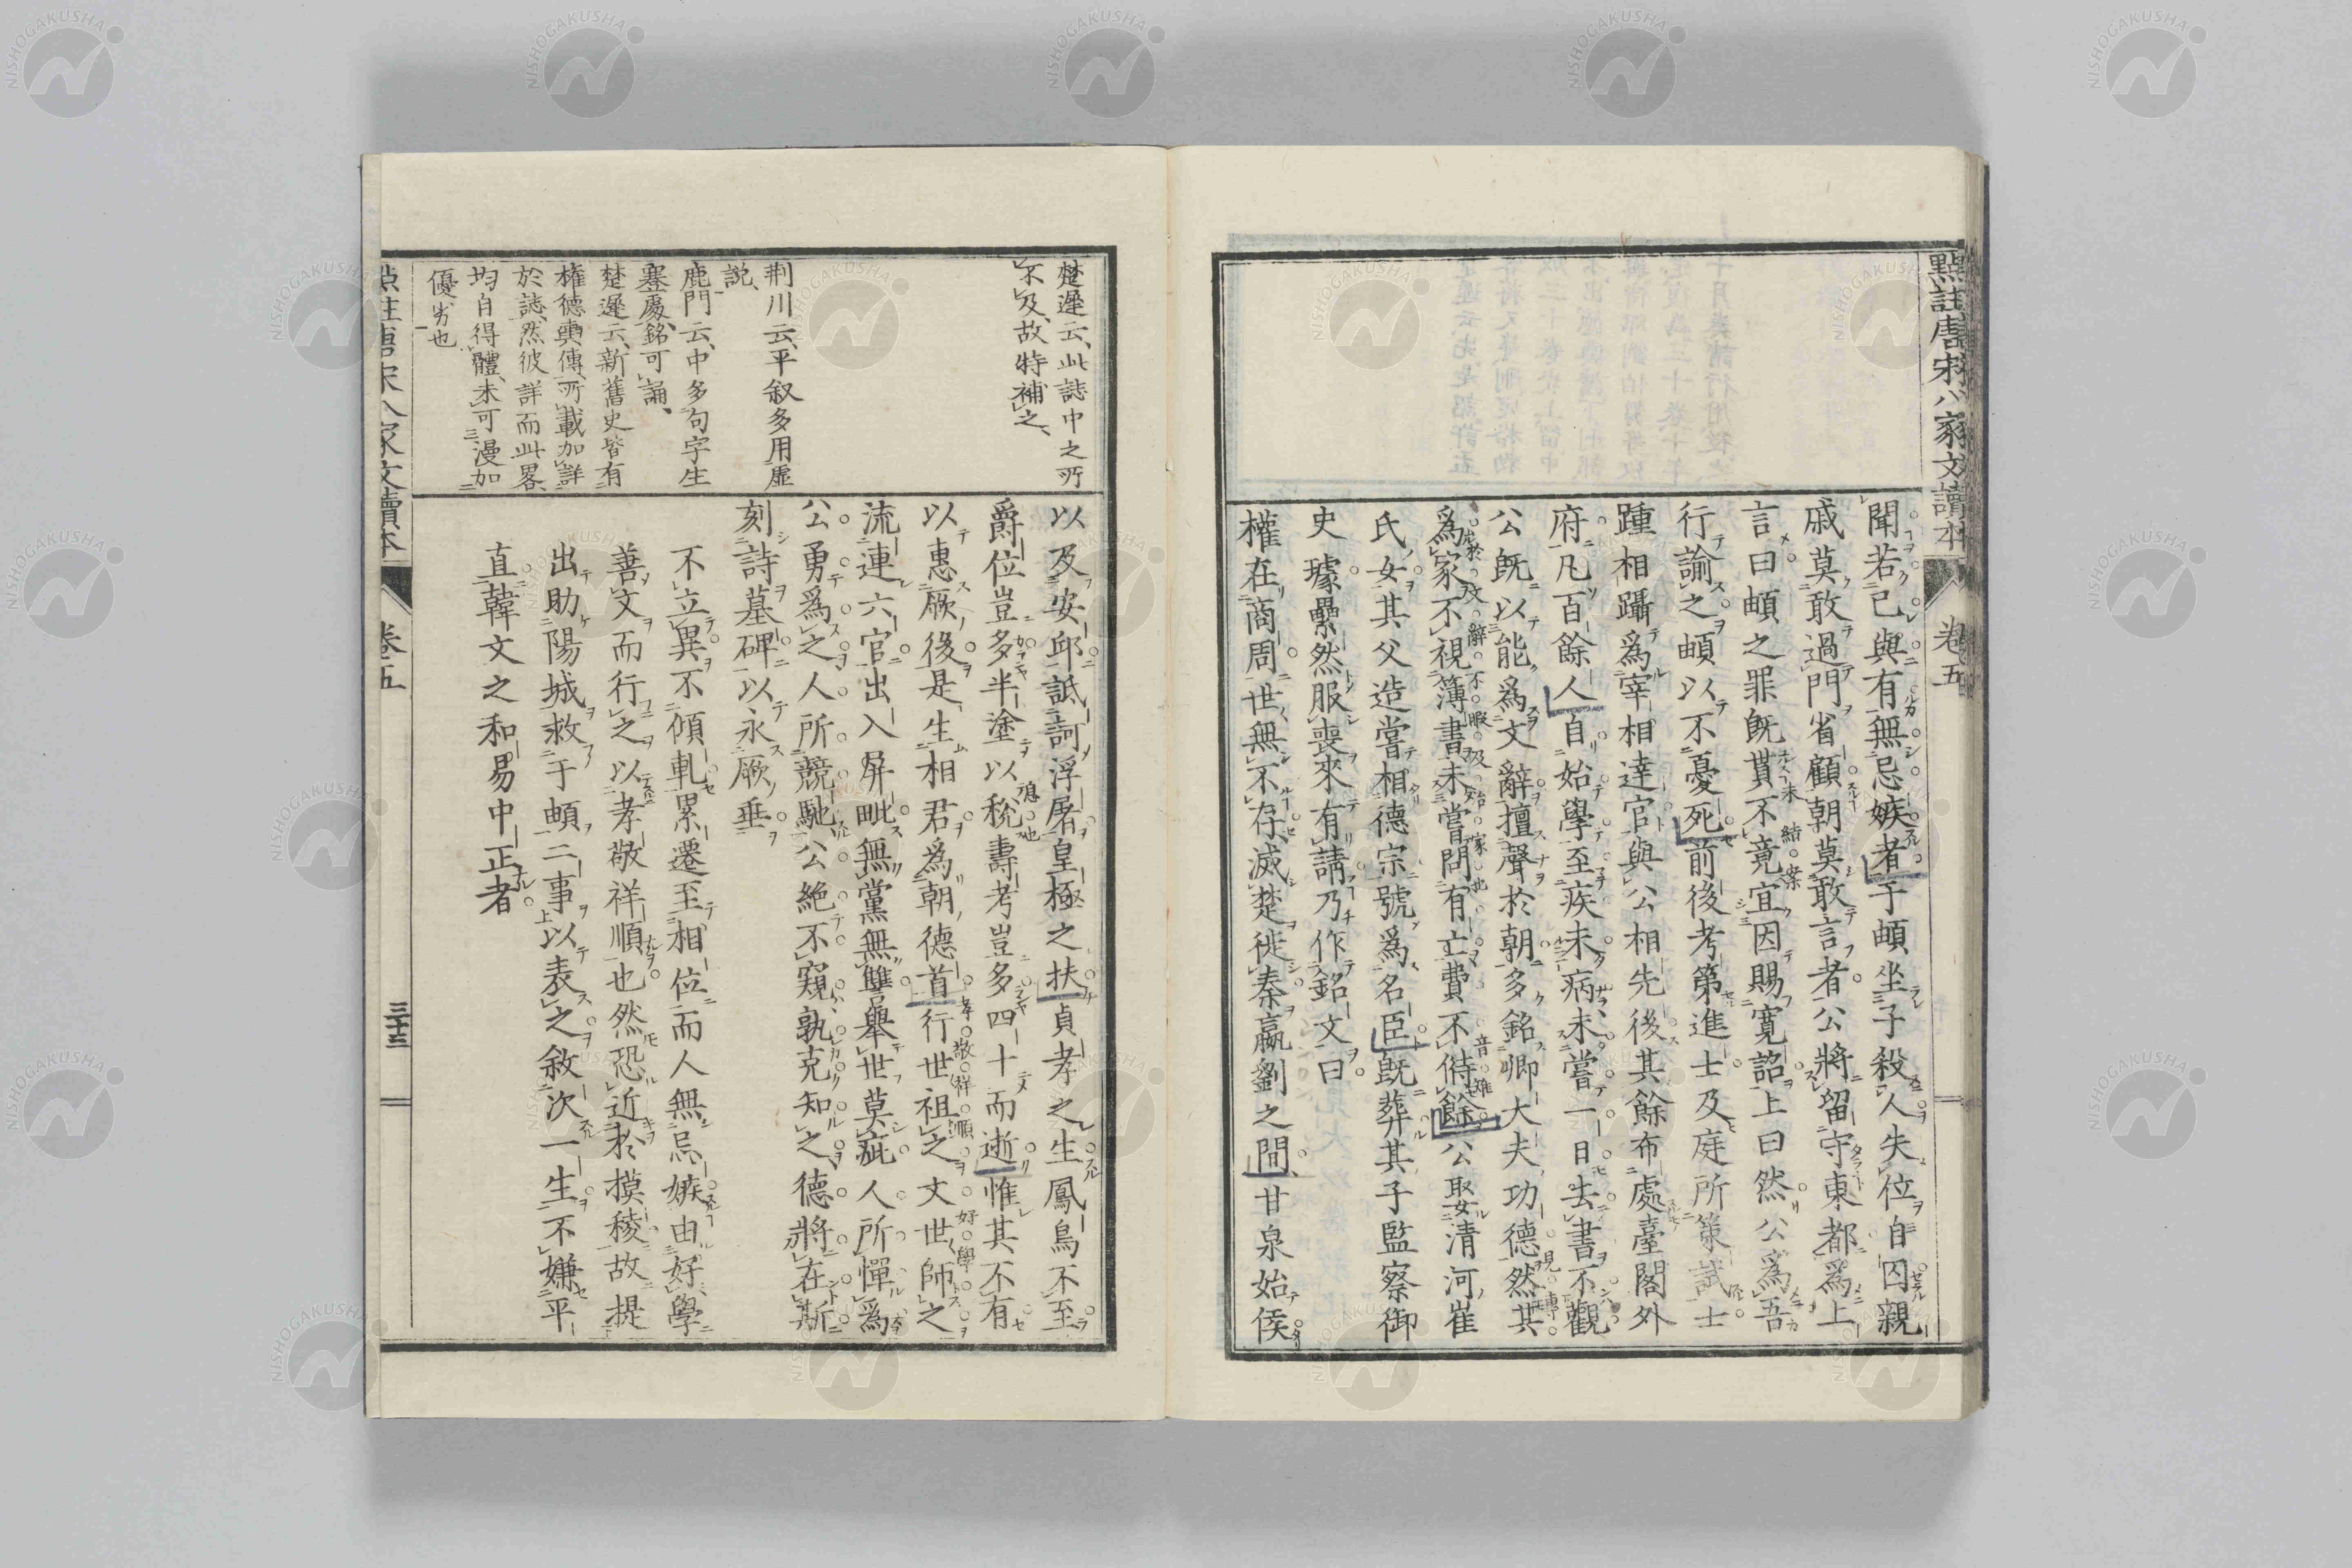 點註唐宋八家文讀本 卷五
聞若己與有無忌嫉者于頔坐子殺人失位自囚親
戚莫敢過門省顧朝莫敢言者公將留守東都爲上
言曰頔之罪旣貰不竟宜因賜寬詔上曰然公爲吾
行諭之頔以不憂死前後考第進士及庭所策試士
踵相躡爲宰相達官與公相先後其餘布處臺閣外
府凡百餘人自始學至疾未病未嘗一日去書不觀
公旣以能爲文辭擅聲於朝多銘卿大夫功德然其
爲家不視簿書未嘗問有亡費不偫餘公取女清河崔
氏女其父造嘗相德宗號爲名臣旣葬其子監察御
史璩纍然服喪來有請乃作銘文曰
權在商周世無不存滅楚徙秦嬴劉之間甘泉始侯
楚遲云、此誌中之所
不及、故特補之、
荆川云、平叙多用虛
説、
鹿門云、中多句字生
蹇處、銘可誦、
楚遲云、新舊史皆有
權德輿傳、所載加詳
於誌、然彼詳而此畧、
均自得體、未可漫加
優劣也
以及安邱詆訶浮屠皇極之扶貞孝之生鳳鳥不至
爵位豈多半塗以稅壽考豈多四十而逝惟其不有
以惠厥後是生相君爲朝德首行世祖之文世師之
流連六官出入屏毗無黨無讐舉世莫疵人所憚爲
公勇爲之人所競馳公絶不窺孰克知之德將在斯
刻詩墓碑以永厥垂
不立異不傾軋累遷至相位而人無忌嫉由好學
善文而行之以孝敬祥順也然恐近於摸稜故提
出助陽城救于頔二事以表之敘次一生不嫌平
直韓文之和易中正者
點註唐宋八家文讀本 卷五 三十三